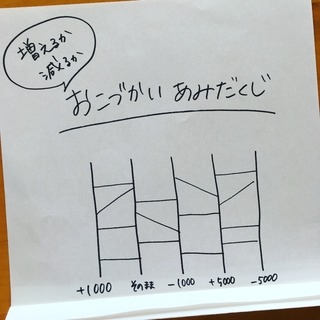 増えるか
減るか
おこづかい あみだくじ
+1000 そのまま -1000 +5000 -5000